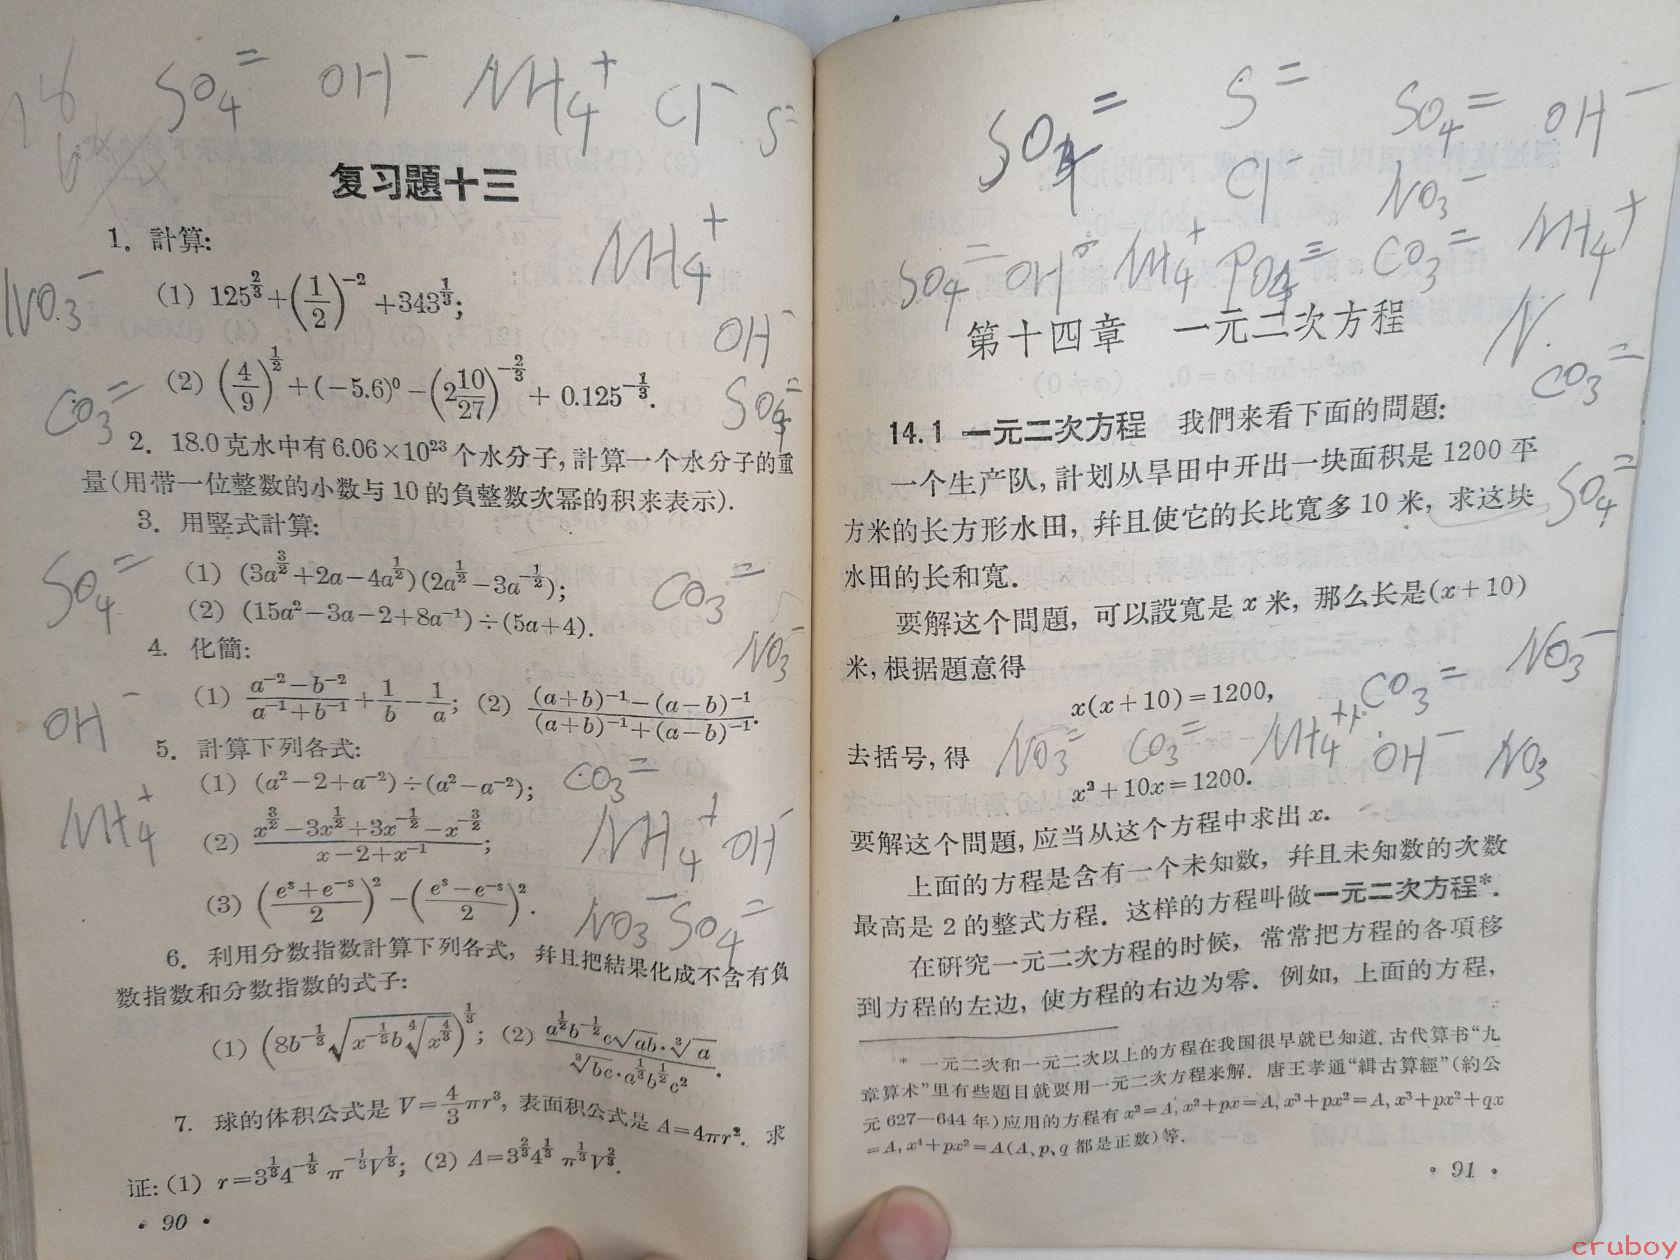 SO₄⁼ OH⁻ NH₄⁺ Cl⁻ S⁼
复习題十三
1. 計算:
NH₄⁺
NO₃⁻
(1) 125^{2/3}+(1/2)^{-2}+343^{1/3};
OH⁻
(2) (4/9)^{1/2}+(-5.6)^0-(2 10/27)^{-2/3}+0.125^{-1/3}.
SO₄⁼
CO₃⁼
2. 18.0克水中有6.06×10²³个水分子,計算一个水分子的重
量(用带一位整数的小数与10的負整数次幂的积来表示).
3. 用竪式計算:
SO₄⁼
(1) (3a^{3/2}+2a-4a^{1/2})(2a^{1/2}-3a^{-1/2});
CO₃⁼
(2) (15a²-3a-2+8a⁻¹)÷(5a+4).
4. 化簡:
NO₃⁻
(1) (a⁻²-b⁻²)/(a⁻¹+b⁻¹)+1/b-1/a; (2) ((a+b)⁻¹-(a-b)⁻¹)/((a+b)⁻¹+(a-b)⁻¹).
OH⁻
5. 計算下列各式:
(1) (a²-2+a⁻²)÷(a²-a⁻²);
CO₃⁼
NH₄⁺
(2) (x^{3/2}-3x^{1/2}+3x^{-1/2}-x^{-3/2})/(x-2+x⁻¹);
NH₄⁺ OH⁻
(3) ((e^s+e^{-s})/2)²-((e^s-e^{-s})/2)².
NO₃⁻ SO₄⁼
6. 利用分数指数計算下列各式, 幷且把結果化成不含有負
数指数和分数指数的式子:
(1) (8b^{-1/3}√(x^{-1/3}b∜(x^{4/3})))^{1/3}; (2) (a^{1/2}b^{-1/2}c√(ab)·∛a)/(∛(bc)·a^{1/3}b^{1/2}c²).
7. 球的体积公式是 V=4/3πr³, 表面积公式是 A=4πr². 求
证: (1) r=3^{1/3}4^{-1/3}π^{-1/3}V^{1/3}; (2) A=3^{2/3}4^{1/3}π^{1/3}V^{2/3}.
· 90 ·
SO₄⁼ S⁼ SO₄⁼ OH⁻
Cl⁻ NO₃⁻
SO₄⁼ OH NH₄⁺ PO₄ CO₃⁼ NH₄⁺
第十四章 一元二次方程
N
CO₃⁼
14.1 一元二次方程 我們来看下面的問題:
一个生产队, 計划从旱田中开出一块面积是1200平
SO₄⁼
方米的长方形水田, 幷且使它的长比寬多10米, 求这块
水田的长和寬.
要解这个問題, 可以設寬是 x 米, 那么长是(x+10)
米, 根据題意得
NO₃⁻
x(x+10)=1200,
CO₃⁼
去括号, 得
NO₃⁼ CO₃⁼ NH₄⁺ OH⁻ NO₃
x²+10x=1200.
要解这个問題, 应当从这个方程中求出 x.
上面的方程是含有一个未知数, 幷且未知数的次数
最高是2的整式方程. 这样的方程叫做一元二次方程*.
在研究一元二次方程的时候, 常常把方程的各項移
到方程的左边, 使方程的右边为零. 例如, 上面的方程,
* 一元二次和一元二次以上的方程在我国很早就已知道. 古代算书“九
章算术”里有些題目就要用一元二次方程来解. 唐王孝通“緝古算經”(約公
元627—644年)应用的方程有 x²=A, x²+px=A, x³+px²=A, x³+px²+qx
=A, x⁴+px²=A(A、p、q 都是正数)等.
· 91 ·
cruboy